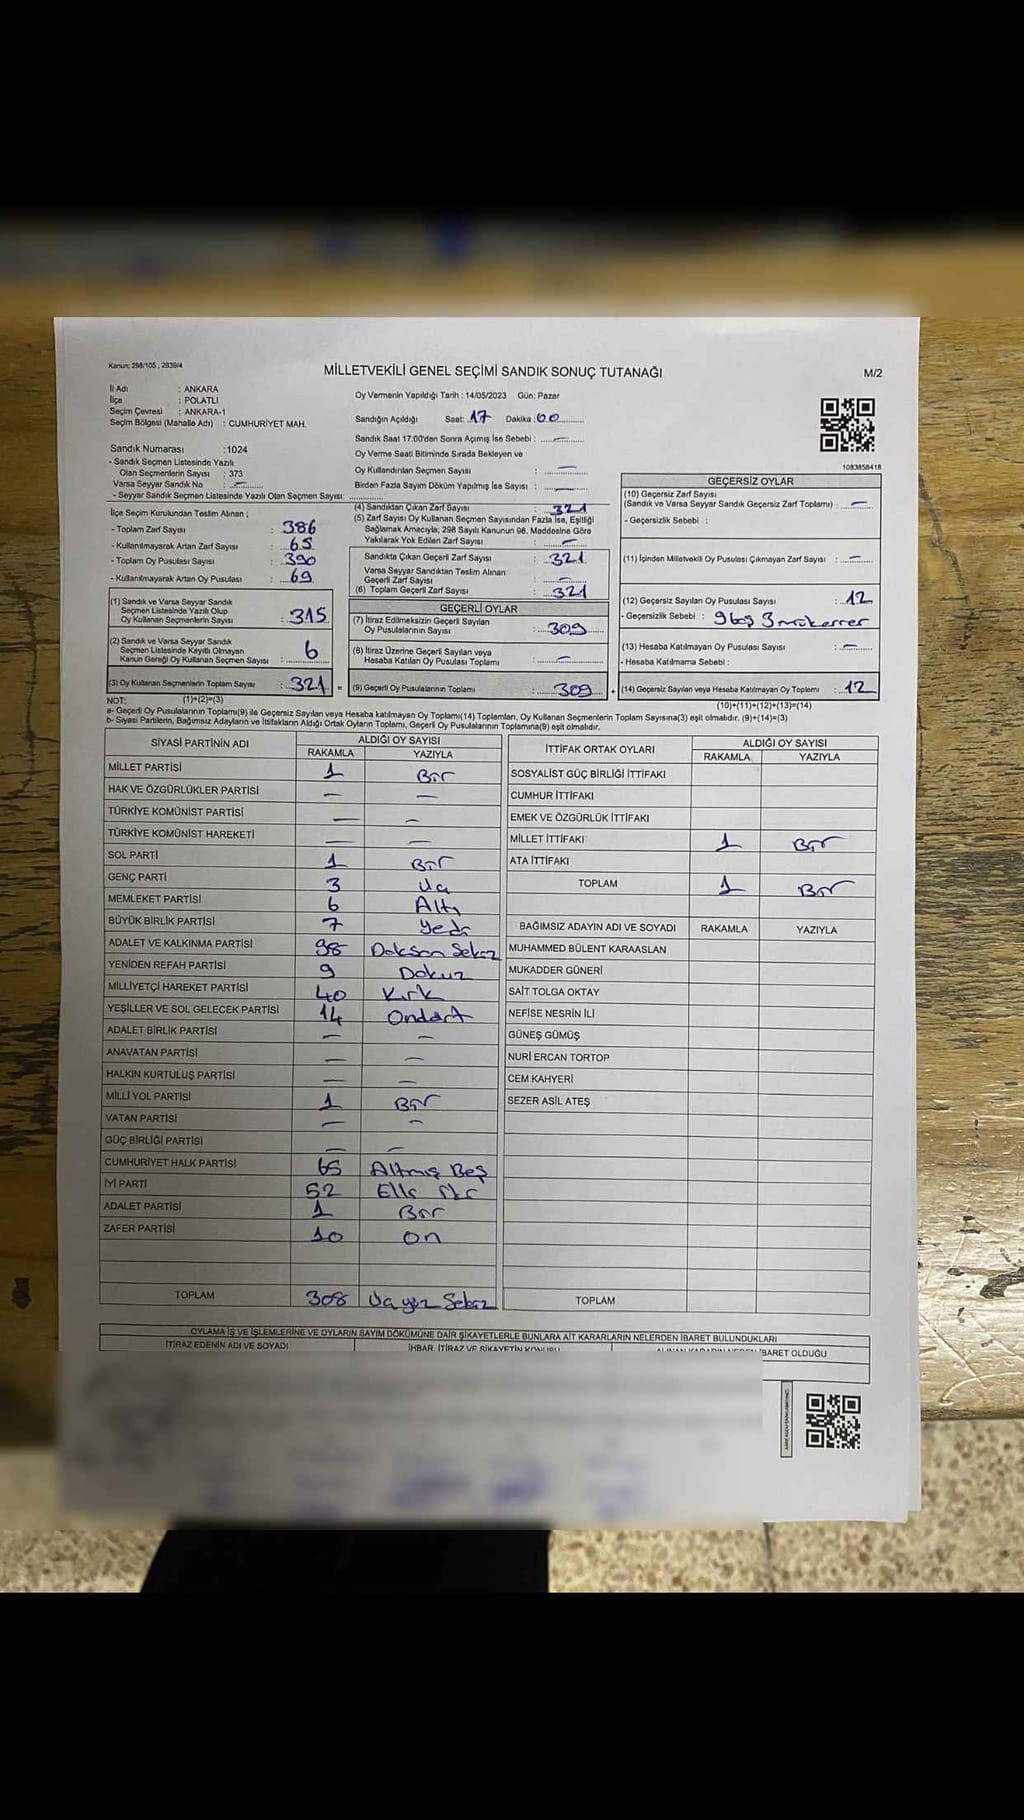 Kanun: 298/105, 2839/4
MİLLETVEKİLİ GENEL SEÇİMİ SANDIK SONUÇ TUTANAĞI
M/2
İl Adı : ANKARA
İlçe : POLATLI
Seçim Çevresi : ANKARA-1
Seçim Bölgesi (Mahalle Adı) : CUMHURİYET MAH.
Sandık Numarası :1024
- Sandık Seçmen Listesinde Yazılı
Olan Seçmenlerin Sayısı : 373
Varsa Seyyar Sandık No : —
- Seyyar Sandık Seçmen Listesinde Yazılı Olan Seçmen Sayısı:
Oy Vermenin Yapıldığı Tarih : 14/05/2023 Gün: Pazar
Sandığın Açıldığı Saat: 17 Dakika: 00
Sandık Saat 17:00'den Sonra Açımış İse Sebebi : —
Oy Verme Saati Bitiminde Sırada Bekleyen ve
Oy Kullandırılan Seçmen Sayısı : —
Birden Fazla Sayım Döküm Yapılmış İse Sayısı : —
1083858418
İlçe Seçim Kurulundan Teslim Alınan ;
- Toplam Zarf Sayısı : 386
- Kullanılmayarak Artan Zarf Sayısı : 65
- Toplam Oy Pusulası Sayısı : 390
- Kullanılmayarak Artan Oy Pusulası : 69
(1) Sandık ve Varsa Seyyar Sandık
Seçmen Listesinde Yazılı Olup
Oy Kullanan Seçmenlerin Sayısı : 315
(2) Sandık ve Varsa Seyyar Sandık
Seçmen Listesinde Kayıtlı Olmayan
Kanun Gereği Oy Kullanan Seçmen Sayısı : 6
(3) Oy Kullanan Seçmenlerin Toplam Sayısı : 321 =
(4) Sandıktan Çıkan Zarf Sayısı : 321
(5) Zarf Sayısı Oy Kullanan Seçmen Sayısından Fazla İse, Eşitliği
Sağlamak Amacıyla; 298 Sayılı Kanunun 98. Maddesine Göre
Yakılarak Yok Edilen Zarf Sayısı : —
Sandıkta Çıkan Geçerli Zarf Sayısı : 321
Varsa Seyyar Sandıktan Teslim Alınan
Geçerli Zarf Sayısı : —
(6) Toplam Geçerli Zarf Sayısı : 321
GEÇERLİ OYLAR
(7) İtiraz Edilmeksizin Geçerli Sayılan
Oy Pusulalarının Sayısı : 309
(8) İtiraz Üzerine Geçerli Sayılan veya
Hesaba Katılan Oy Pusulası Toplamı : —
(9) Geçerli Oy Pusulalarının Toplamı : 309 +
GEÇERSİZ OYLAR
(10) Geçersiz Zarf Sayısı
(Sandık ve Varsa Seyyar Sandık Geçersiz Zarf Toplamı) : —
- Geçersizlik Sebebi :
(11) İçinden Milletvekili Oy Pusulası Çıkmayan Zarf Sayısı : —
(12) Geçersiz Sayılan Oy Pusulası Sayısı : 12
- Geçersizlik Sebebi : 9 boş 3 mükerrer
(13) Hesaba Katılmayan Oy Pusulası Sayısı : —
- Hesaba Katılmama Sebebi :
(14) Geçersiz Sayılan veya Hesaba Katılmayan Oy Toplamı : 12
NOT: (1)+(2)=(3)
(10)+(11)+(12)+(13)=(14)
a- Geçerli Oy Pusulalarının Toplamı(9) ile Geçersiz Sayılan veya Hesaba katılmayan Oy Toplamı(14) Toplamları, Oy Kullanan Seçmenlerin Toplam Sayısına(3) eşit olmalıdır. (9)+(14)=(3)
b- Siyasi Partilerin, Bağımsız Adayların ve İttifakların Aldığı Ortak Oyların Toplamı, Geçerli Oy Pusulalarının Toplamına(9) eşit olmalıdır.
SİYASİ PARTİNİN ADI ALDIĞI OY SAYISI
RAKAMLA YAZIYLA
MİLLET PARTİSİ 1 Bir
HAK VE ÖZGÜRLÜKLER PARTİSİ — —
TÜRKİYE KOMÜNİST PARTİSİ — —
TÜRKİYE KOMÜNİST HAREKETİ — —
SOL PARTİ 1 Bir
GENÇ PARTİ 3 Üç
MEMLEKET PARTİSİ 6 Altı
BÜYÜK BİRLİK PARTİSİ 7 Yedi
ADALET VE KALKINMA PARTİSİ 98 Doksan Sekiz
YENİDEN REFAH PARTİSİ 9 Dokuz
MİLLİYETÇİ HAREKET PARTİSİ 40 Kırk
YEŞİLLER VE SOL GELECEK PARTİSİ 14 Ondört
ADALET BİRLİK PARTİSİ — —
ANAVATAN PARTİSİ — —
HALKIN KURTULUŞ PARTİSİ — —
MİLLİ YOL PARTİSİ 1 Bir
VATAN PARTİSİ — —
GÜÇ BİRLİĞİ PARTİSİ — —
CUMHURİYET HALK PARTİSİ 65 Altmış Beş
İYİ PARTİ 52 Elli İki
ADALET PARTİSİ 1 Bir
ZAFER PARTİSİ 10 On
TOPLAM 308 Üç yüz Sekiz
İTTİFAK ORTAK OYLARI ALDIĞI OY SAYISI
RAKAMLA YAZIYLA
SOSYALİST GÜÇ BİRLİĞİ İTTİFAKI
CUMHUR İTTİFAKI
EMEK VE ÖZGÜRLÜK İTTİFAKI
MİLLET İTTİFAKI 1 Bir
ATA İTTİFAKI
TOPLAM 1 Bir
BAĞIMSIZ ADAYIN ADI VE SOYADI RAKAMLA YAZIYLA
MUHAMMED BÜLENT KARAASLAN
MUKADDER GÜNERİ
SAİT TOLGA OKTAY
NEFİSE NESRİN İLİ
GÜNEŞ GÜMÜŞ
NURİ ERCAN TORTOP
CEM KAHYERİ
SEZER ASİL ATEŞ
TOPLAM
OYLAMA İŞ VE İŞLEMLERİNE VE OYLARIN SAYIM DÖKÜMÜNE DAİR ŞİKAYETLERLE BUNLARA AİT KARARLARIN NELERDEN İBARET BULUNDUKLARI
İTİRAZ EDENİN ADI VE SOYADI İHBAR, İTİRAZ VE ŞİKAYETİN KONUSU İBARET OLDUĞU